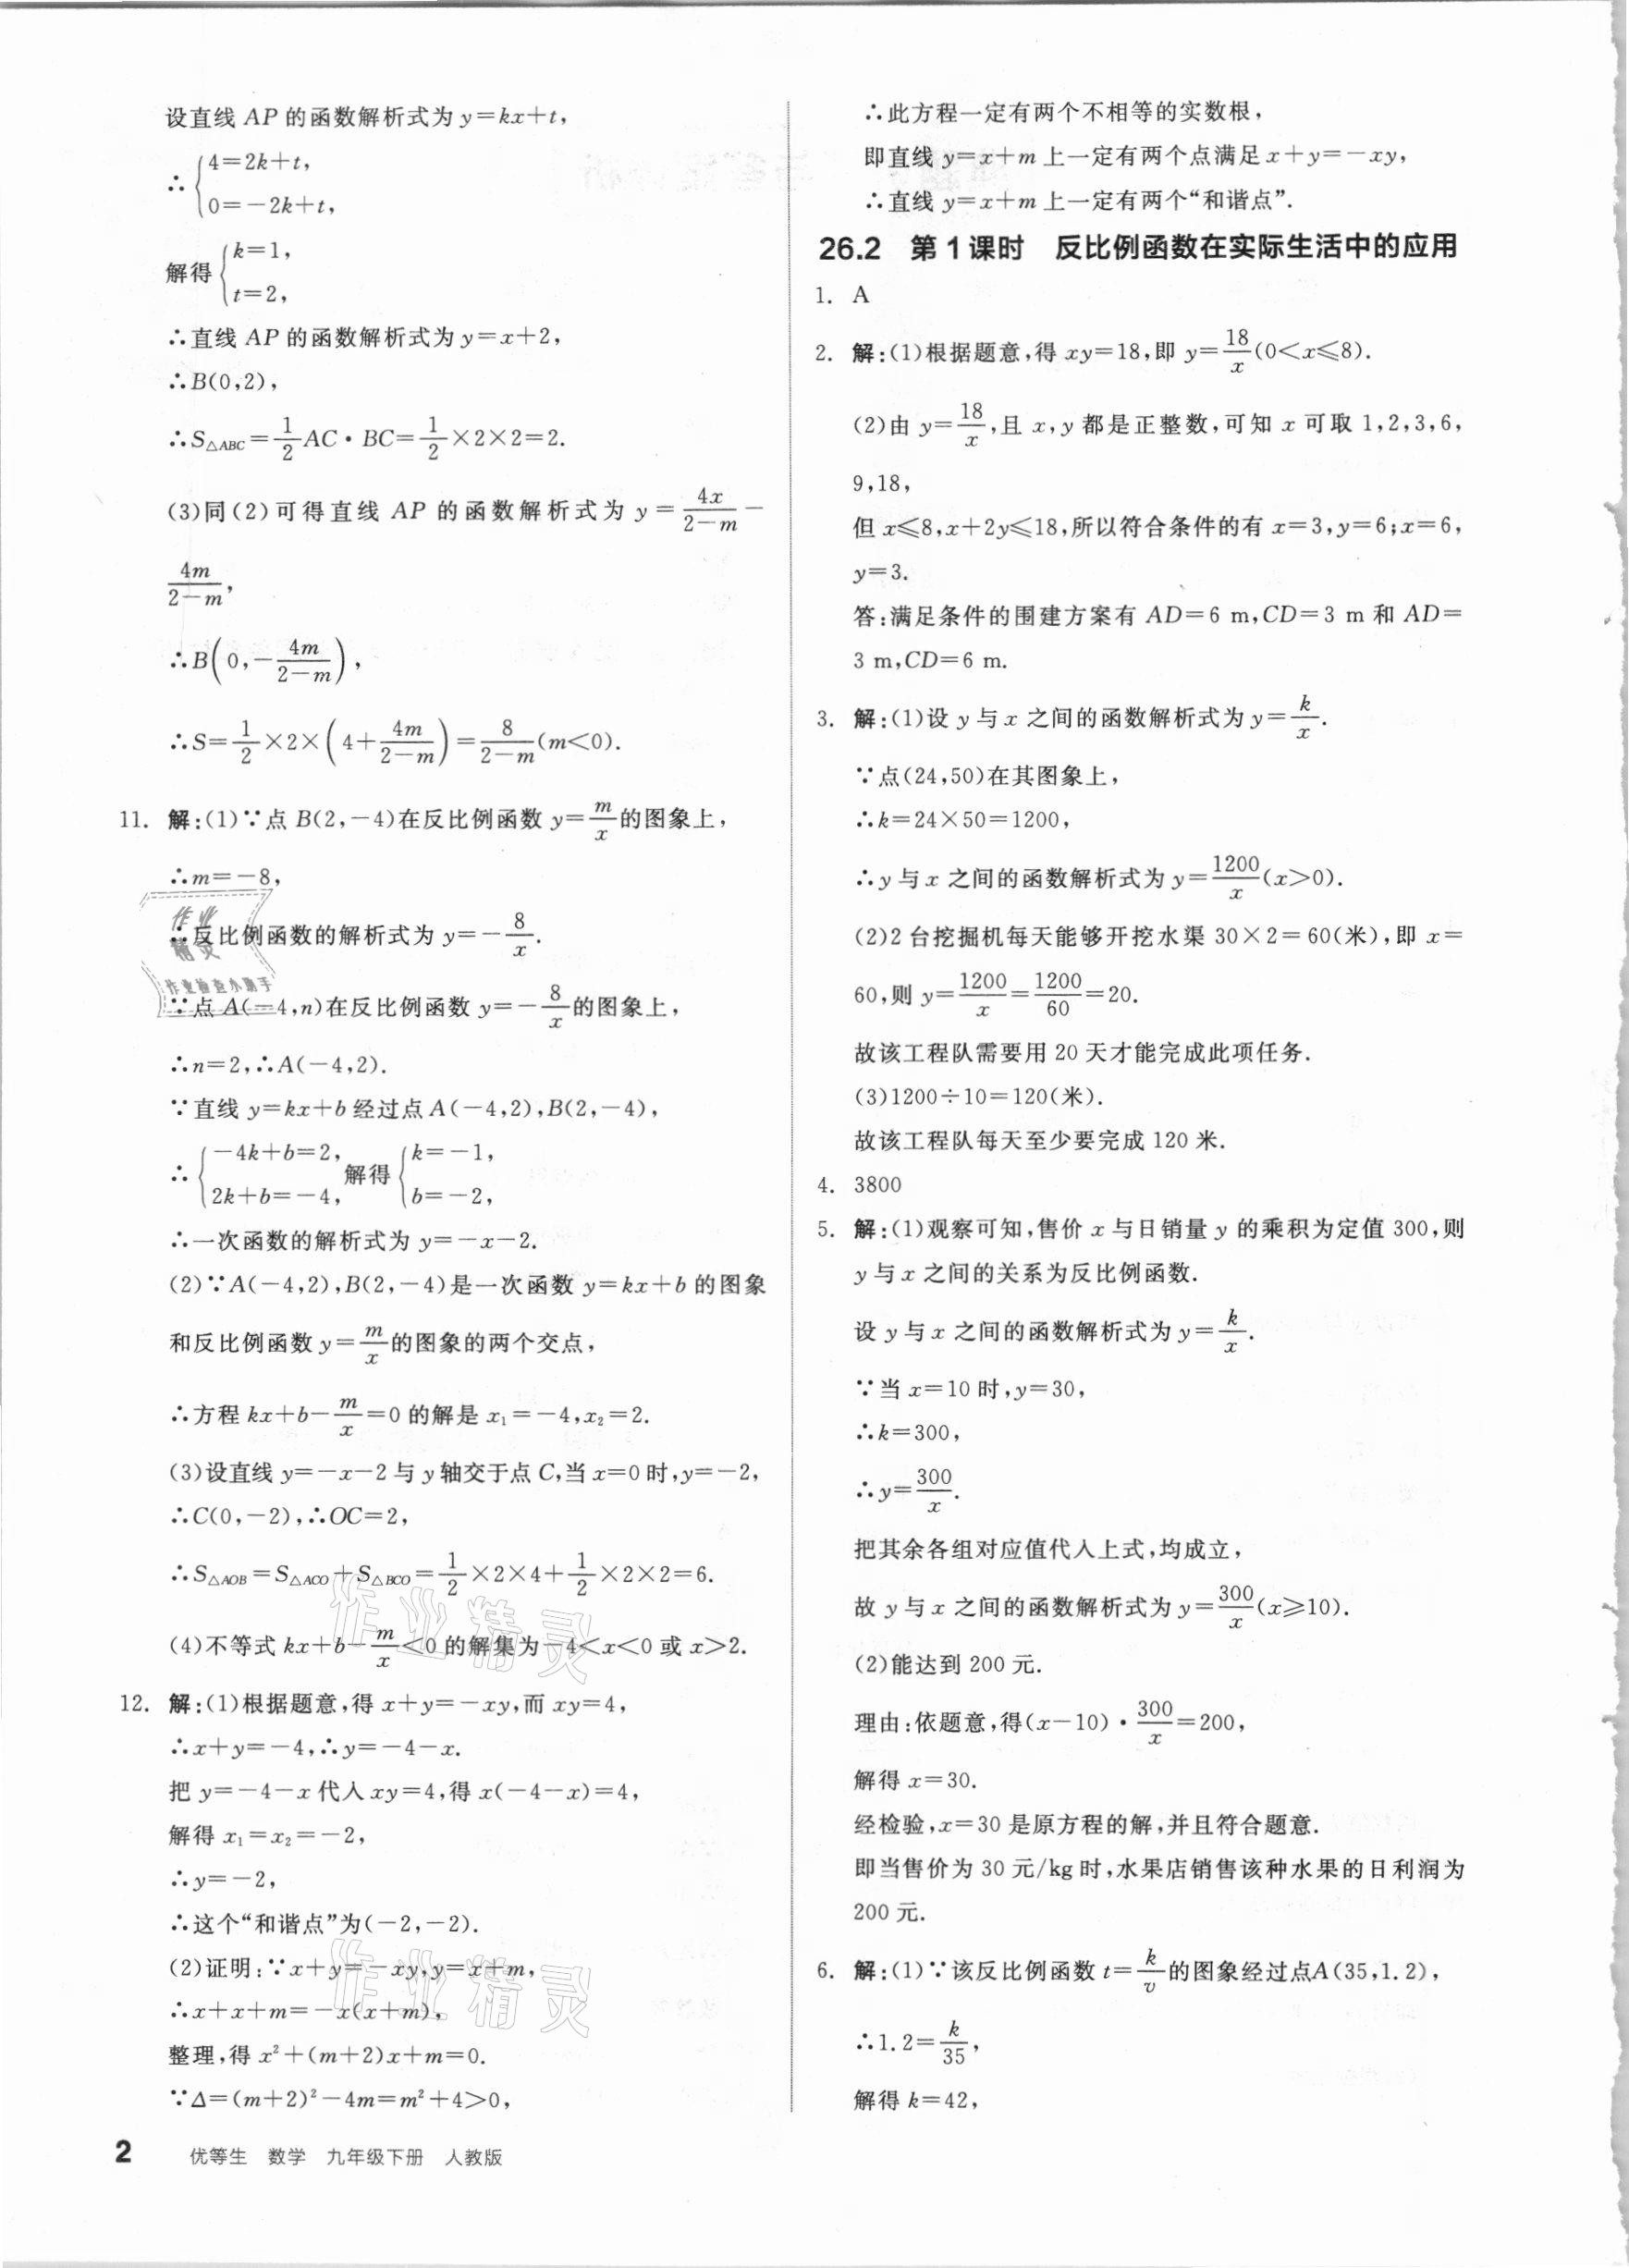 设直线 AP 的函数解析式为 y=kx+t,
∴{4=2k+t,
0=-2k+t,
解得{k=1,
t=2,
∴直线 AP 的函数解析式为 y=x+2,
∴B(0,2),
∴S△ABC=1/2 AC·BC=1/2×2×2=2.
(3)同(2)可得直线 AP 的函数解析式为 y=4x/(2-m)-
4m/(2-m),
∴B(0,-4m/(2-m)),
∴S=1/2×2×(4+4m/(2-m))=8/(2-m)(m<0).
11. 解:(1)∵点 B(2,-4)在反比例函数 y=m/x的图象上,
∴m=-8,
∴反比例函数的解析式为 y=-8/x.
∵点 A(-4,n)在反比例函数 y=-8/x的图象上,
∴n=2,∴A(-4,2).
∵直线 y=kx+b 经过点 A(-4,2),B(2,-4),
∴{-4k+b=2, 解得{k=-1,
2k+b=-4, b=-2,
∴一次函数的解析式为 y=-x-2.
(2)∵A(-4,2),B(2,-4)是一次函数 y=kx+b 的图象
和反比例函数 y=m/x的图象的两个交点,
∴方程 kx+b-m/x=0 的解是 x₁=-4,x₂=2.
(3)设直线 y=-x-2 与 y 轴交于点 C,当 x=0 时,y=-2,
∴C(0,-2),∴OC=2,
∴S△AOB=S△ACO+S△BCO=1/2×2×4+1/2×2×2=6.
(4)不等式 kx+b-m/x<0 的解集为-4<x<0 或 x>2.
12. 解:(1)根据题意,得 x+y=-xy,而 xy=4,
∴x+y=-4,∴y=-4-x.
把 y=-4-x 代入 xy=4,得 x(-4-x)=4,
解得 x₁=x₂=-2,
∴y=-2,
∴这个“和谐点”为(-2,-2).
(2)证明:∵x+y=-xy,y=x+m,
∴x+x+m=-x(x+m),
整理,得 x²+(m+2)x+m=0.
∵Δ=(m+2)²-4m=m²+4>0,
∴此方程一定有两个不相等的实数根,
即直线 y=x+m 上一定有两个点满足 x+y=-xy,
∴直线 y=x+m 上一定有两个“和谐点”.
26.2 第1课时 反比例函数在实际生活中的应用
1. A
2. 解:(1)根据题意,得 xy=18,即 y=18/x(0<x≤8).
(2)由 y=18/x,且 x,y 都是正整数,可知 x 可取 1,2,3,6,
9,18,
但 x≤8,x+2y≤18,所以符合条件的有 x=3,y=6;x=6,
y=3.
答:满足条件的围建方案有 AD=6 m,CD=3 m 和 AD=
3 m,CD=6 m.
3. 解:(1)设 y 与 x 之间的函数解析式为 y=k/x.
∵点(24,50)在其图象上,
∴k=24×50=1200,
∴y 与 x 之间的函数解析式为 y=1200/x(x>0).
(2)2 台挖掘机每天能够开挖水渠 30×2=60(米),即 x=
60,则 y=1200/x=1200/60=20.
故该工程队需要用 20 天才能完成此项任务.
(3)1200÷10=120(米).
故该工程队每天至少要完成 120 米.
4. 3800
5. 解:(1)观察可知,售价 x 与日销量 y 的乘积为定值 300,则
y 与 x 之间的关系为反比例函数.
设 y 与 x 之间的函数解析式为 y=k/x.
∵当 x=10 时,y=30,
∴k=300,
∴y=300/x.
把其余各组对应值代入上式,均成立,
故 y 与 x 之间的函数解析式为 y=300/x(x≥10).
(2)能达到 200 元.
理由:依题意,得(x-10)·300/x=200,
解得 x=30.
经检验,x=30 是原方程的解,并且符合题意.
即当售价为 30 元/kg 时,水果店销售该种水果的日利润为
200 元.
6. 解:(1)∵该反比例函数 t=k/v的图象经过点A(35,1.2),
∴1.2=k/35,
解得 k=42,
2 优等生 数学 九年级下册 人教版
作业
精灵
作业检查小助手
作业精灵
作业精灵